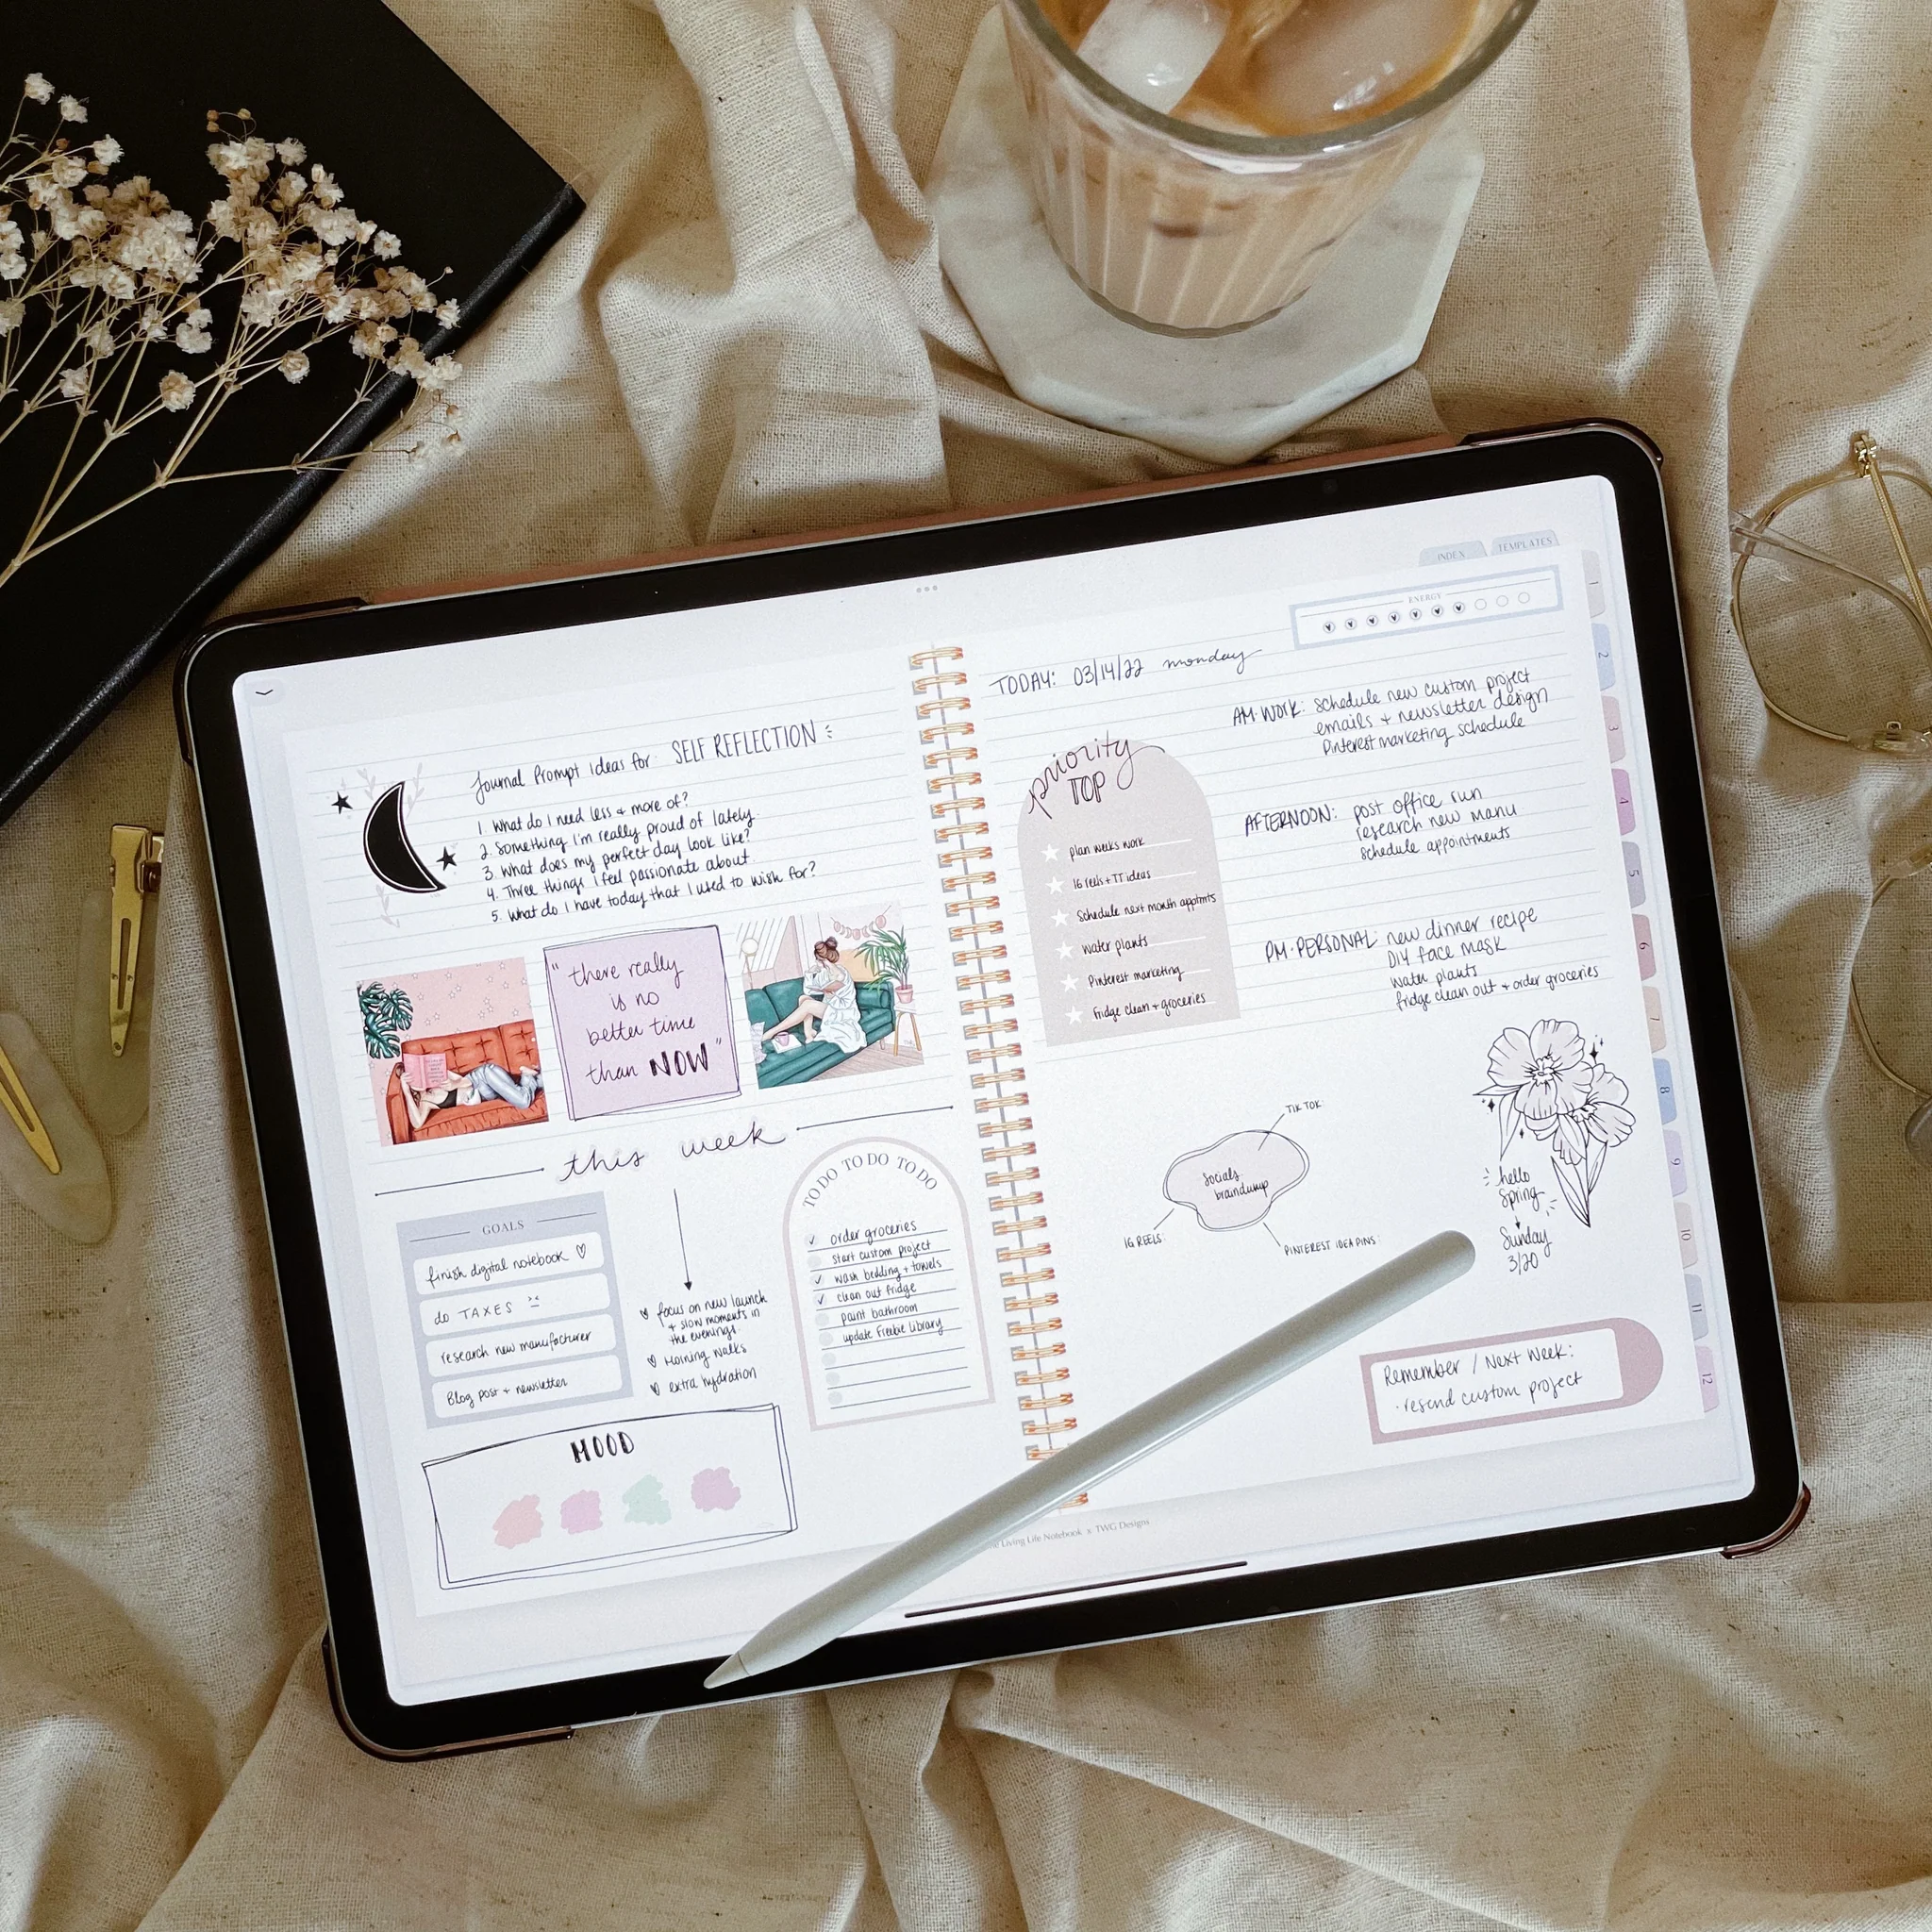 Journal Prompt Ideas for: SELF REFLECTION
1. What do I need less + more of?
2. Something I'm really proud of lately.
3. What does my perfect day look like?
4. Three things I feel passionate about.
5. What do I have today that I used to wish for?
"there really
is no
better time
than NOW"
this week
GOALS
finish digital notebook ♡
do TAXES
research new manufacturer
Blog post + newsletter
focus on new launch
+ slow moments in
the evenings.
Morning walks
extra hydration
TO DO TO DO TO DO
✓ order groceries
start custom project
✓ wash bedding + towels
✓ clean out fridge
paint bathroom
update Freebie Library
MOOD
INDEX
TEMPLATES
ENERGY
TODAY: 03/14/22 monday
priority
TOP
plan weeks work
IG reels + TT ideas
Schedule next month apptmts
water plants
Pinterest marketing
Fridge clean + groceries
AM·WORK: schedule new custom project
emails + newsletter design
Pinterest marketing schedule
AFTERNOON: post office run
research new manu
schedule appointments
PM·PERSONAL: new dinner recipe
DIY face mask
water plants
fridge clean out + order groceries
TIK TOK:
Socials
braindump
IG REELS:
PINTEREST IDEA PINS:
hello
Spring
Sunday
3/20
Remember / Next Week:
· resend custom project
1
2
3
4
5
6
7
8
9
10
11
12
Living Life Notebook x TWG Designs